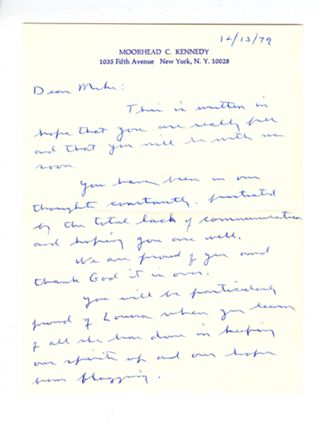 12/13/79
MOORHEAD C. KENNEDY
1035 Fifth Avenue New York, N. Y. 10028
Dear Mike:
This is written in
hope that you are really free
and that you will be with us
soon.
You have been in our
thoughts constantly. frustrated
by the total lack of communication
and hoping you are well.
We are proud of you and
thank God it is over.
You will be particularly
proud of Louisa when you learn
of all she has done in keeping
our spirits up and our hopes
from flagging.